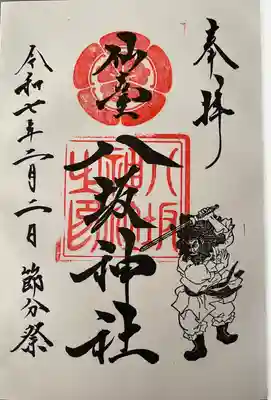 奉拝
仙臺
八坂神社
令和七年二月二日 節分祭